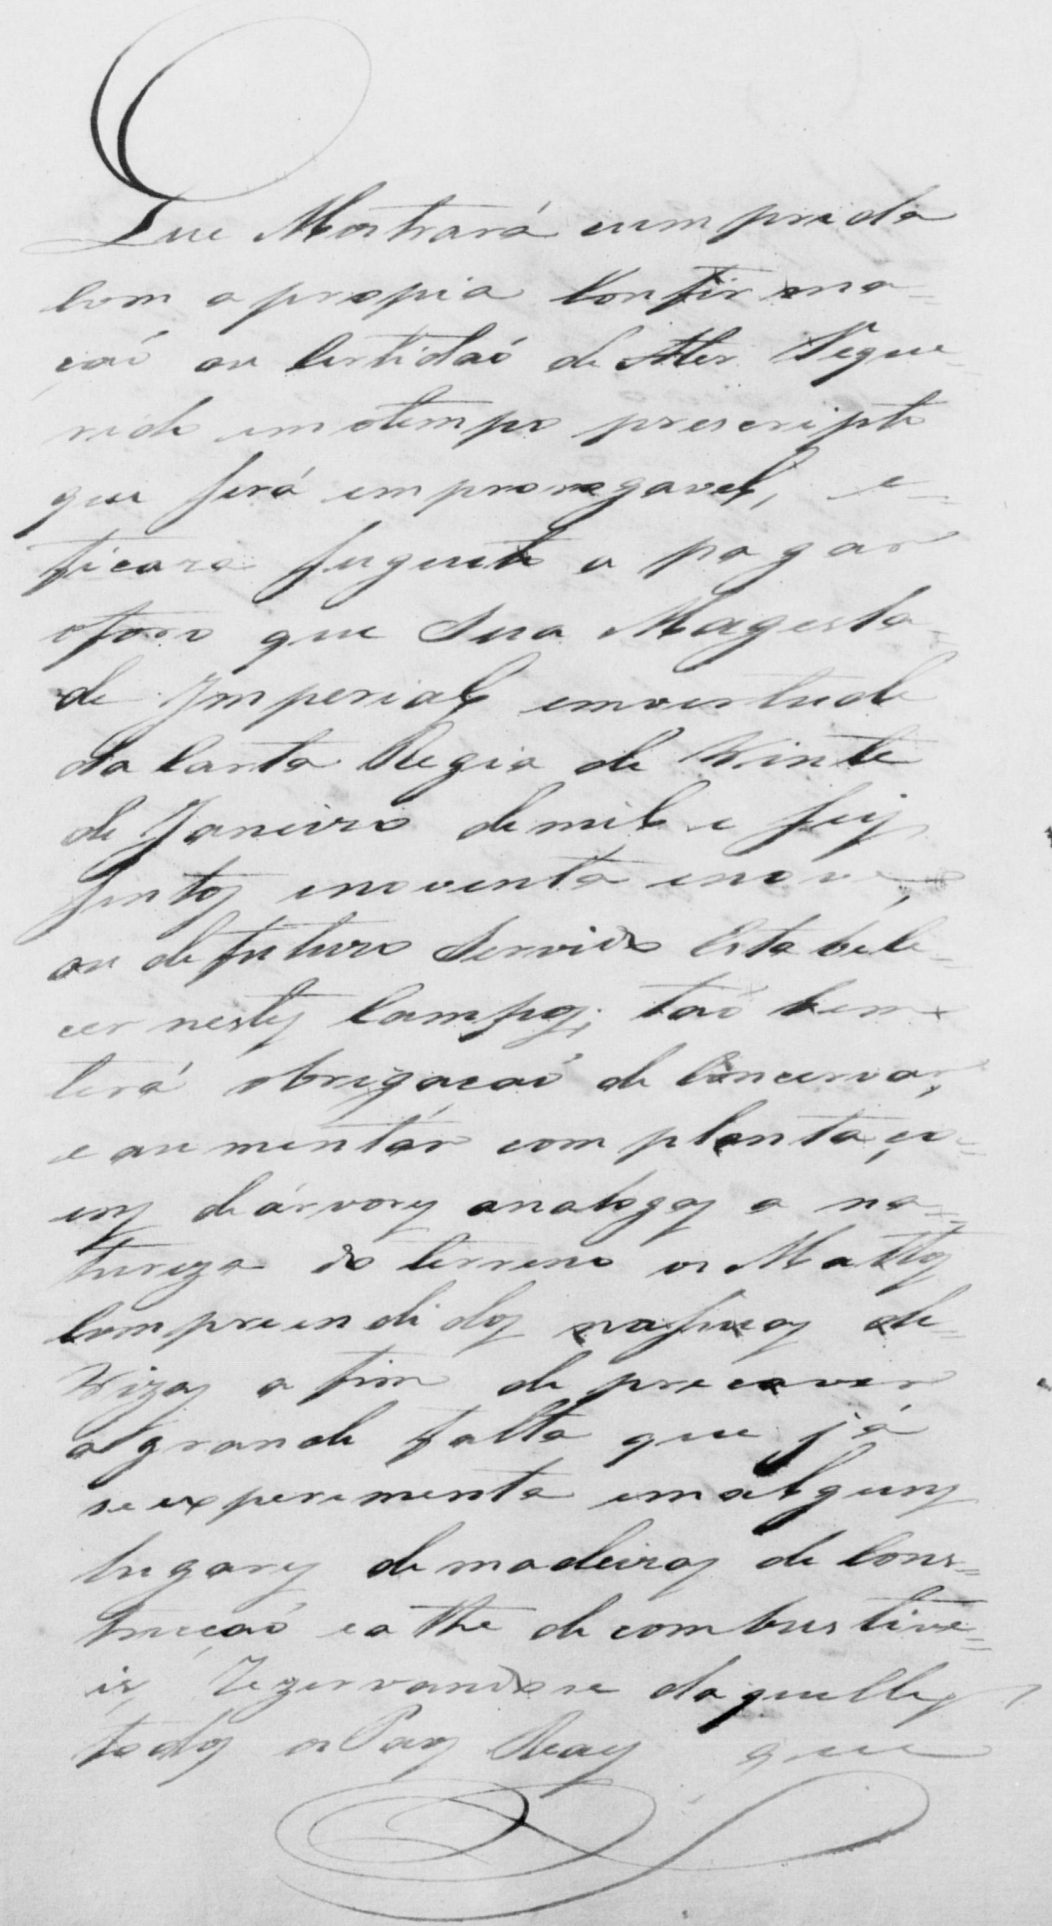 Que Mostrará cumprida
com apropia Confirma=
çaó ou Certidaó de ater Reque=
rido emotempo prescripto
que será emprorogavel, e=
ficara sugeito a pagar
oforo que Sua Magesta=
de Imperial emvertude
da Carta Regia de Vinte
de Janeiro demil e seis
sentos enoventa enove,
ou defuturo Servido Estabele=
cer nestes Campos; taó bem
terá obrigacaó de Concervar,
e aumentár com plantaço=
ens deárvores analogas a na=
tureza do terreno os Mattos
Compreendidos nasuas de=
vizas a fim de precaver
a grande falta que já
seexperimenta emalguns
lugares demadeiras de Cons=
trucçaó eathe decombustive=
is, Rezervandose daquelles
todos os Paos Reays que